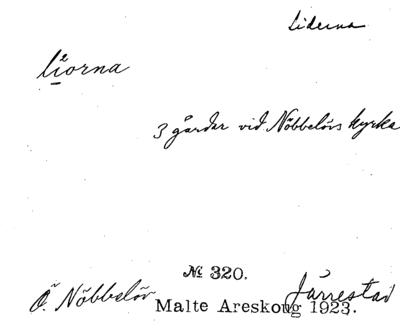 Liderna
liorna
3 gårdar vid Nöbbelövs kyrka
№ 320.
Ö. Nöbbelöv Malte Areskoug 1923. Järrestad